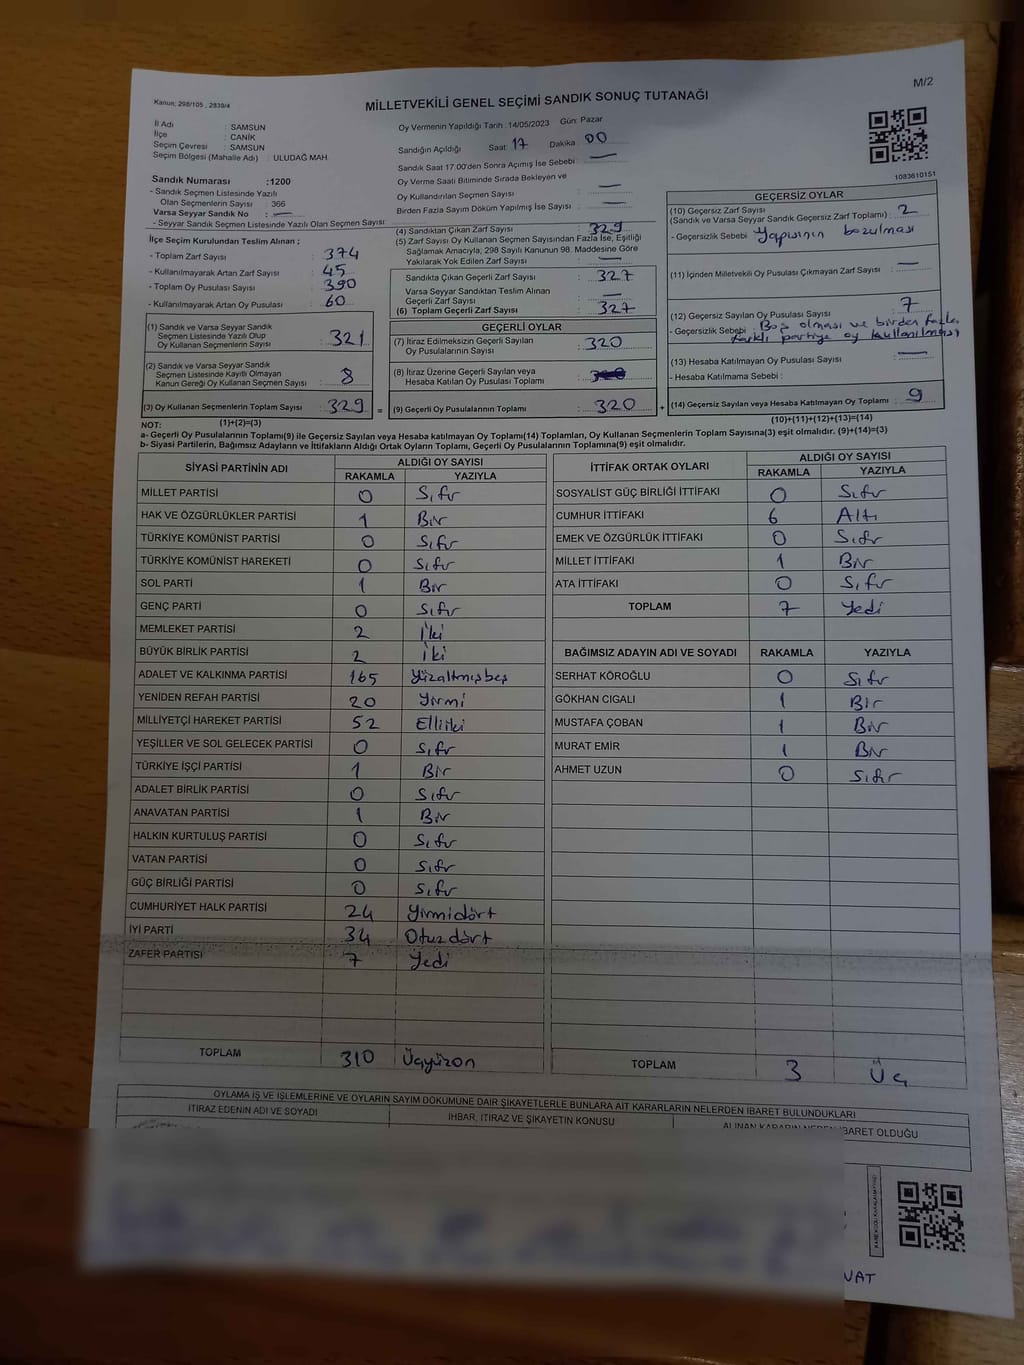 M/2
Kanun; 298/105 , 2839/4
MİLLETVEKİLİ GENEL SEÇİMİ SANDIK SONUÇ TUTANAĞI
İl Adı : SAMSUN
İlçe : CANİK
Seçim Çevresi : SAMSUN
Seçim Bölgesi (Mahalle Adı) : ULUDAĞ MAH.
Oy Vermenin Yapıldığı Tarih : 14/05/2023 Gün: Pazar
Sandığın Açıldığı Saat : 17 Dakika : 00
Sandık Saat 17.00'den Sonra Açımış İse Sebebi : —
Oy Verme Saati Bitiminde Sırada Bekleyen ve
Oy Kullandırılan Seçmen Sayısı : —
Birden Fazla Sayım Döküm Yapılmış İse Sayısı : —
1083610151
Sandık Numarası :1200
- Sandık Seçmen Listesinde Yazılı
Olan Seçmenlerin Sayısı : 366
Varsa Seyyar Sandık No : —
- Seyyar Sandık Seçmen Listesinde Yazılı Olan Seçmen Sayısı:
İlçe Seçim Kurulundan Teslim Alınan ;
- Toplam Zarf Sayısı : 374
- Kullanılmayarak Artan Zarf Sayısı : 45
- Toplam Oy Pusulası Sayısı : 390
- Kullanılmayarak Artan Oy Pusulası : 60
(1) Sandık ve Varsa Seyyar Sandık
Seçmen Listesinde Yazılı Olup
Oy Kullanan Seçmenlerin Sayısı : 321
(2) Sandık ve Varsa Seyyar Sandık
Seçmen Listesinde Kayıtlı Olmayan
Kanun Gereği Oy Kullanan Seçmen Sayısı : 8
(3) Oy Kullanan Seçmenlerin Toplam Sayısı : 329 =
(4) Sandıktan Çıkan Zarf Sayısı : 329
(5) Zarf Sayısı Oy Kullanan Seçmen Sayısından Fazla İse, Eşitliği
Sağlamak Amacıyla; 298 Sayılı Kanunun 98. Maddesine Göre
Yakılarak Yok Edilen Zarf Sayısı : —
Sandıkta Çıkan Geçerli Zarf Sayısı : 327
Varsa Seyyar Sandıktan Teslim Alınan
Geçerli Zarf Sayısı : —
(6) Toplam Geçerli Zarf Sayısı : 327
GEÇERLİ OYLAR
(7) İtiraz Edilmeksizin Geçerli Sayılan
Oy Pusulalarının Sayısı : 320
(8) İtiraz Üzerine Geçerli Sayılan veya
Hesaba Katılan Oy Pusulası Toplamı :
(9) Geçerli Oy Pusulalarının Toplamı : 320 +
GEÇERSİZ OYLAR
(10) Geçersiz Zarf Sayısı
(Sandık ve Varsa Seyyar Sandık Geçersiz Zarf Toplamı) : 2
- Geçersizlik Sebebi : Yapısının bozulması
(11) İçinden Milletvekili Oy Pusulası Çıkmayan Zarf Sayısı : —
(12) Geçersiz Sayılan Oy Pusulası Sayısı : 7
- Geçersizlik Sebebi : Boş olması ve birden fazla
farklı partiye oy kullanılması
(13) Hesaba Katılmayan Oy Pusulası Sayısı : —
- Hesaba Katılmama Sebebi :
(14) Geçersiz Sayılan veya Hesaba Katılmayan Oy Toplamı : 9
NOT: (1)+(2)=(3) (10)+(11)+(12)+(13)=(14)
a- Geçerli Oy Pusulalarının Toplamı(9) ile Geçersiz Sayılan veya Hesaba katılmayan Oy Toplamı(14) Toplamları, Oy Kullanan Seçmenlerin Toplam Sayısına(3) eşit olmalıdır. (9)+(14)=(3)
b- Siyasi Partilerin, Bağımsız Adayların ve İttifakların Aldığı Oyların Toplamı, Geçerli Oy Pusulalarının Toplamına(9) eşit olmalıdır.
SİYASİ PARTİNİN ADI ALDIĞI OY SAYISI
RAKAMLA YAZIYLA
MİLLET PARTİSİ 0 Sıfır
HAK VE ÖZGÜRLÜKLER PARTİSİ 1 Bir
TÜRKİYE KOMÜNİST PARTİSİ 0 Sıfır
TÜRKİYE KOMÜNİST HAREKETİ 0 Sıfır
SOL PARTİ 1 Bir
GENÇ PARTİ 0 Sıfır
MEMLEKET PARTİSİ 2 İki
BÜYÜK BİRLİK PARTİSİ 2 İki
ADALET VE KALKINMA PARTİSİ 165 Yüzaltmışbeş
YENİDEN REFAH PARTİSİ 20 Yirmi
MİLLİYETÇİ HAREKET PARTİSİ 52 Elliiki
YEŞİLLER VE SOL GELECEK PARTİSİ 0 Sıfır
TÜRKİYE İŞÇİ PARTİSİ 1 Bir
ADALET BİRLİK PARTİSİ 0 Sıfır
ANAVATAN PARTİSİ 1 Bir
HALKIN KURTULUŞ PARTİSİ 0 Sıfır
VATAN PARTİSİ 0 Sıfır
GÜÇ BİRLİĞİ PARTİSİ 0 Sıfır
CUMHURİYET HALK PARTİSİ 24 Yirmidört
İYİ PARTİ 34 Otuzdört
ZAFER PARTİSİ 7 Yedi
TOPLAM 310 Üçyüzon
İTTİFAK ORTAK OYLARI ALDIĞI OY SAYISI
RAKAMLA YAZIYLA
SOSYALİST GÜÇ BİRLİĞİ İTTİFAKI 0 Sıfır
CUMHUR İTTİFAKI 6 Altı
EMEK VE ÖZGÜRLÜK İTTİFAKI 0 Sıfır
MİLLET İTTİFAKI 1 Bir
ATA İTTİFAKI 0 Sıfır
TOPLAM 7 Yedi
BAĞIMSIZ ADAYIN ADI VE SOYADI RAKAMLA YAZIYLA
SERHAT KÖROĞLU 0 Sıfır
GÖKHAN CIGALI 1 Bir
MUSTAFA ÇOBAN 1 Bir
MURAT EMİR 1 Bir
AHMET UZUN 0 Sıfır
TOPLAM 3 Üç
OYLAMA İŞ VE İŞLEMLERİNE VE OYLARIN SAYIM DÖKÜMÜNE DAİR ŞİKAYETLERLE BUNLARA AİT KARARLARIN NELERDEN İBARET BULUNDUKLARI
İTİRAZ EDENİN ADI VE SOYADI İHBAR, İTİRAZ VE ŞİKAYETİN KONUSU ALINAN KARARIN NEDEN İBARET OLDUĞU